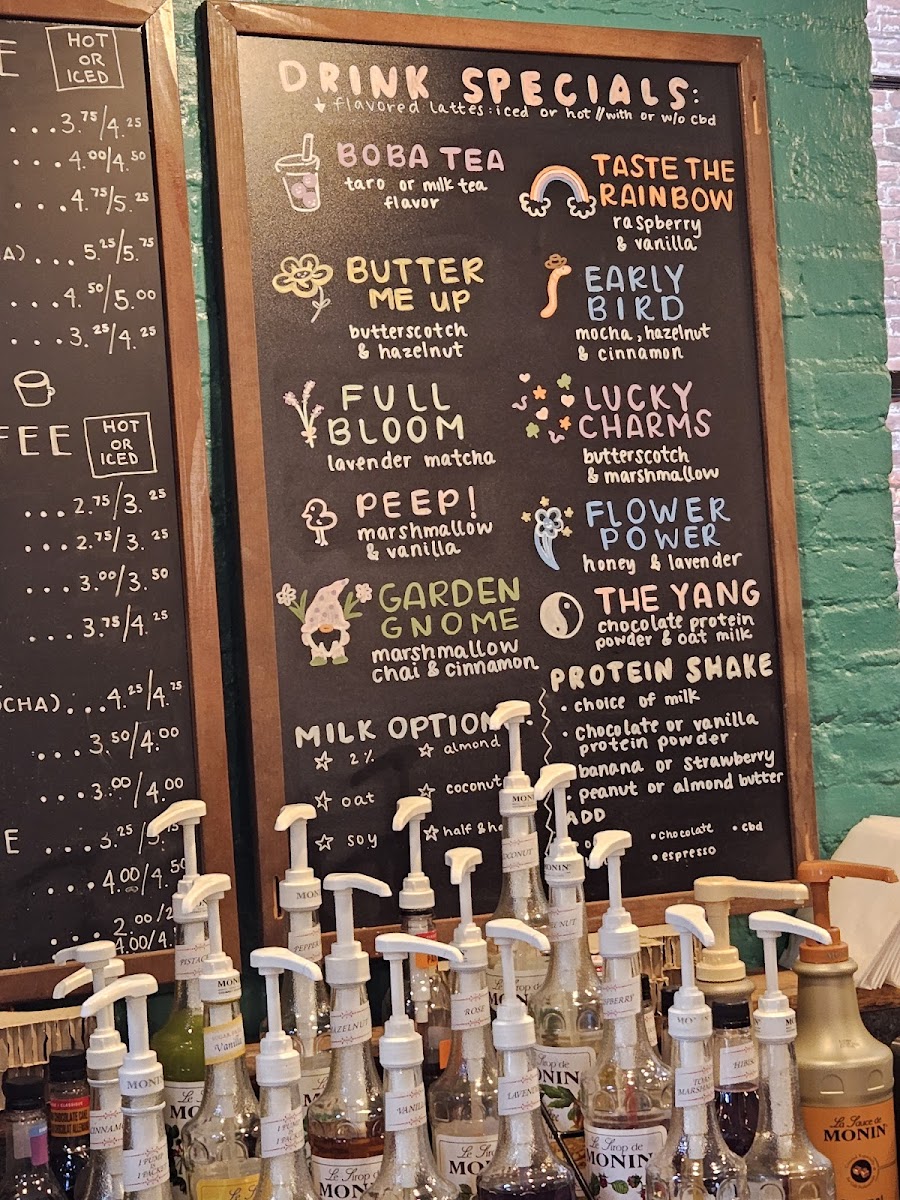 HOT
OR
ICED
...3.75/4.25
...4.00/4.50
...4.75/5.25
A)...5.25/5.75
...4.50/5.00
...3.25/4.25
FEE
HOT
OR
ICED
...2.75/3.25
...2.75/3.25
...3.00/3.50
...3.75/4.25
CHA)...4.25/4.75
...3.50/4.00
...3.00/4.00
E ...3.25/
...4.00/4.50
...2.00/2
4.00/4.
DRINK SPECIALS:
↓ flavored lattes: iced or hot // with or w/o cbd
BOBA TEA
taro or milk tea
flavor
BUTTER
ME UP
butterscotch
& hazelnut
FULL
BLOOM
lavender matcha
PEEP!
marshmallow
& vanilla
GARDEN
GNOME
marshmallow
chai & cinnamon
TASTE THE
RAINBOW
raspberry
& vanilla
EARLY
BIRD
mocha, hazelnut
& cinnamon
LUCKY
CHARMS
butterscotch
& marshmallow
FLOWER
POWER
honey & lavender
THE YANG
chocolate protein
powder & oat milk
MILK OPTION
☆ 2% ☆ almond
☆ oat ☆ coconut
☆ soy ☆ half & ha
PROTEIN SHAKE
• choice of milk
• chocolate or vanilla
protein powder
banana or strawberry
peanut or almond butter
ADD
• chocolate • cbd
• espresso
MONIN
PISTAC
PEPPER
OCONUT
ROSE
HAZELNUT
Vanilla
VANILL
LAVEN
HIBIS
CINNAMO
1 PUMP
Le Sirop de
MONIN
La Sauce de
MONIN